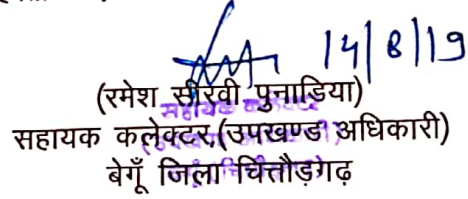 14/8/19
(रमेश सीरवी पुनाडिया)
सहायक कलेक्टर,(उपखण्ड अधिकारी)
बेगूँ जिला चित्तौड़गढ़